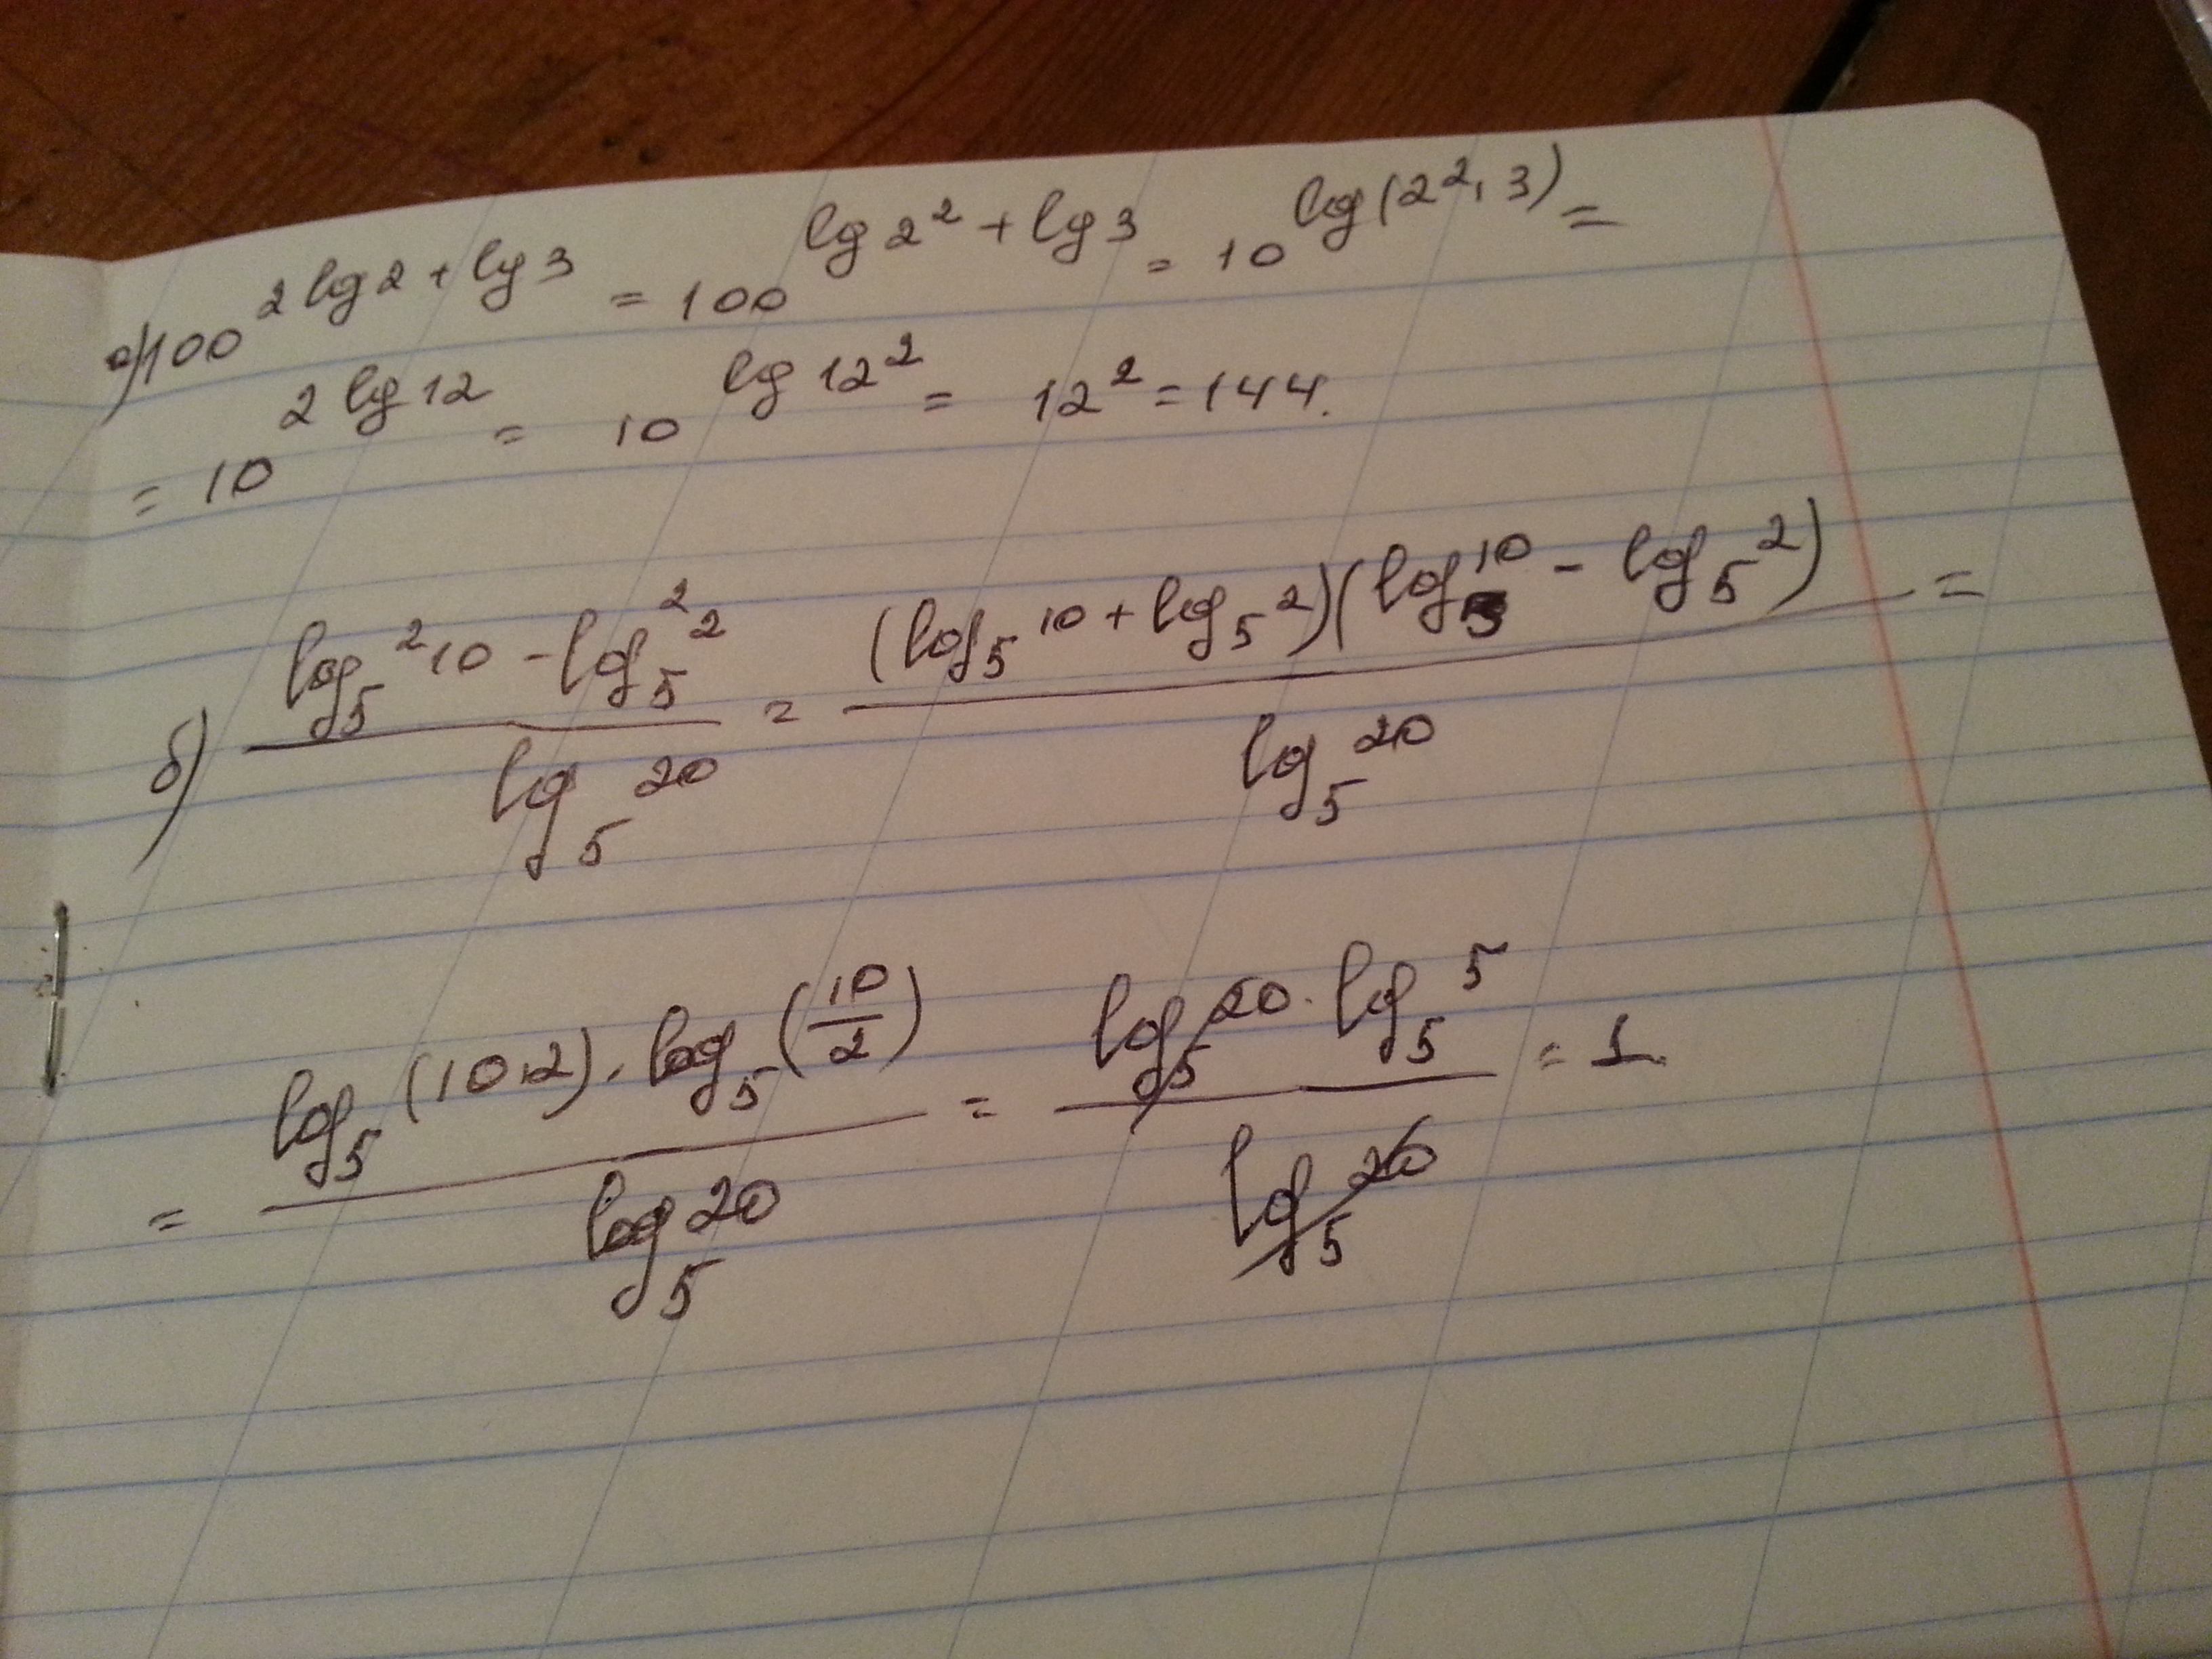 а) 100^(2 lg 2 + lg 3) = 100^(lg 2² + lg 3) = 10^(log(2² · 3)) =
= 10^(2 lg 12) = 10^(lg 12²) = 12² = 144.
б) (log₅² 10 - log₅² 2) / (log₅ 20) = ((log₅ 10 + log₅ 2)(log₅ 10 - log₅ 2)) / (log₅ 20) =
= (log₅ (10 · 2) · log₅ (10/2)) / (log₅ 20) = (log₅ 20 · log₅ 5) / (log₅ 20) = 1.